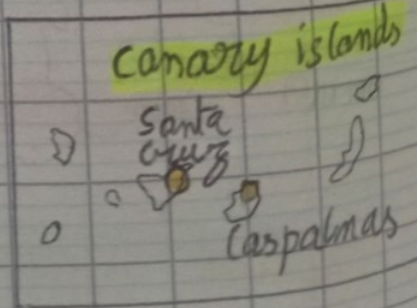 Canary islands
Santa
Cruz
Laspalmas